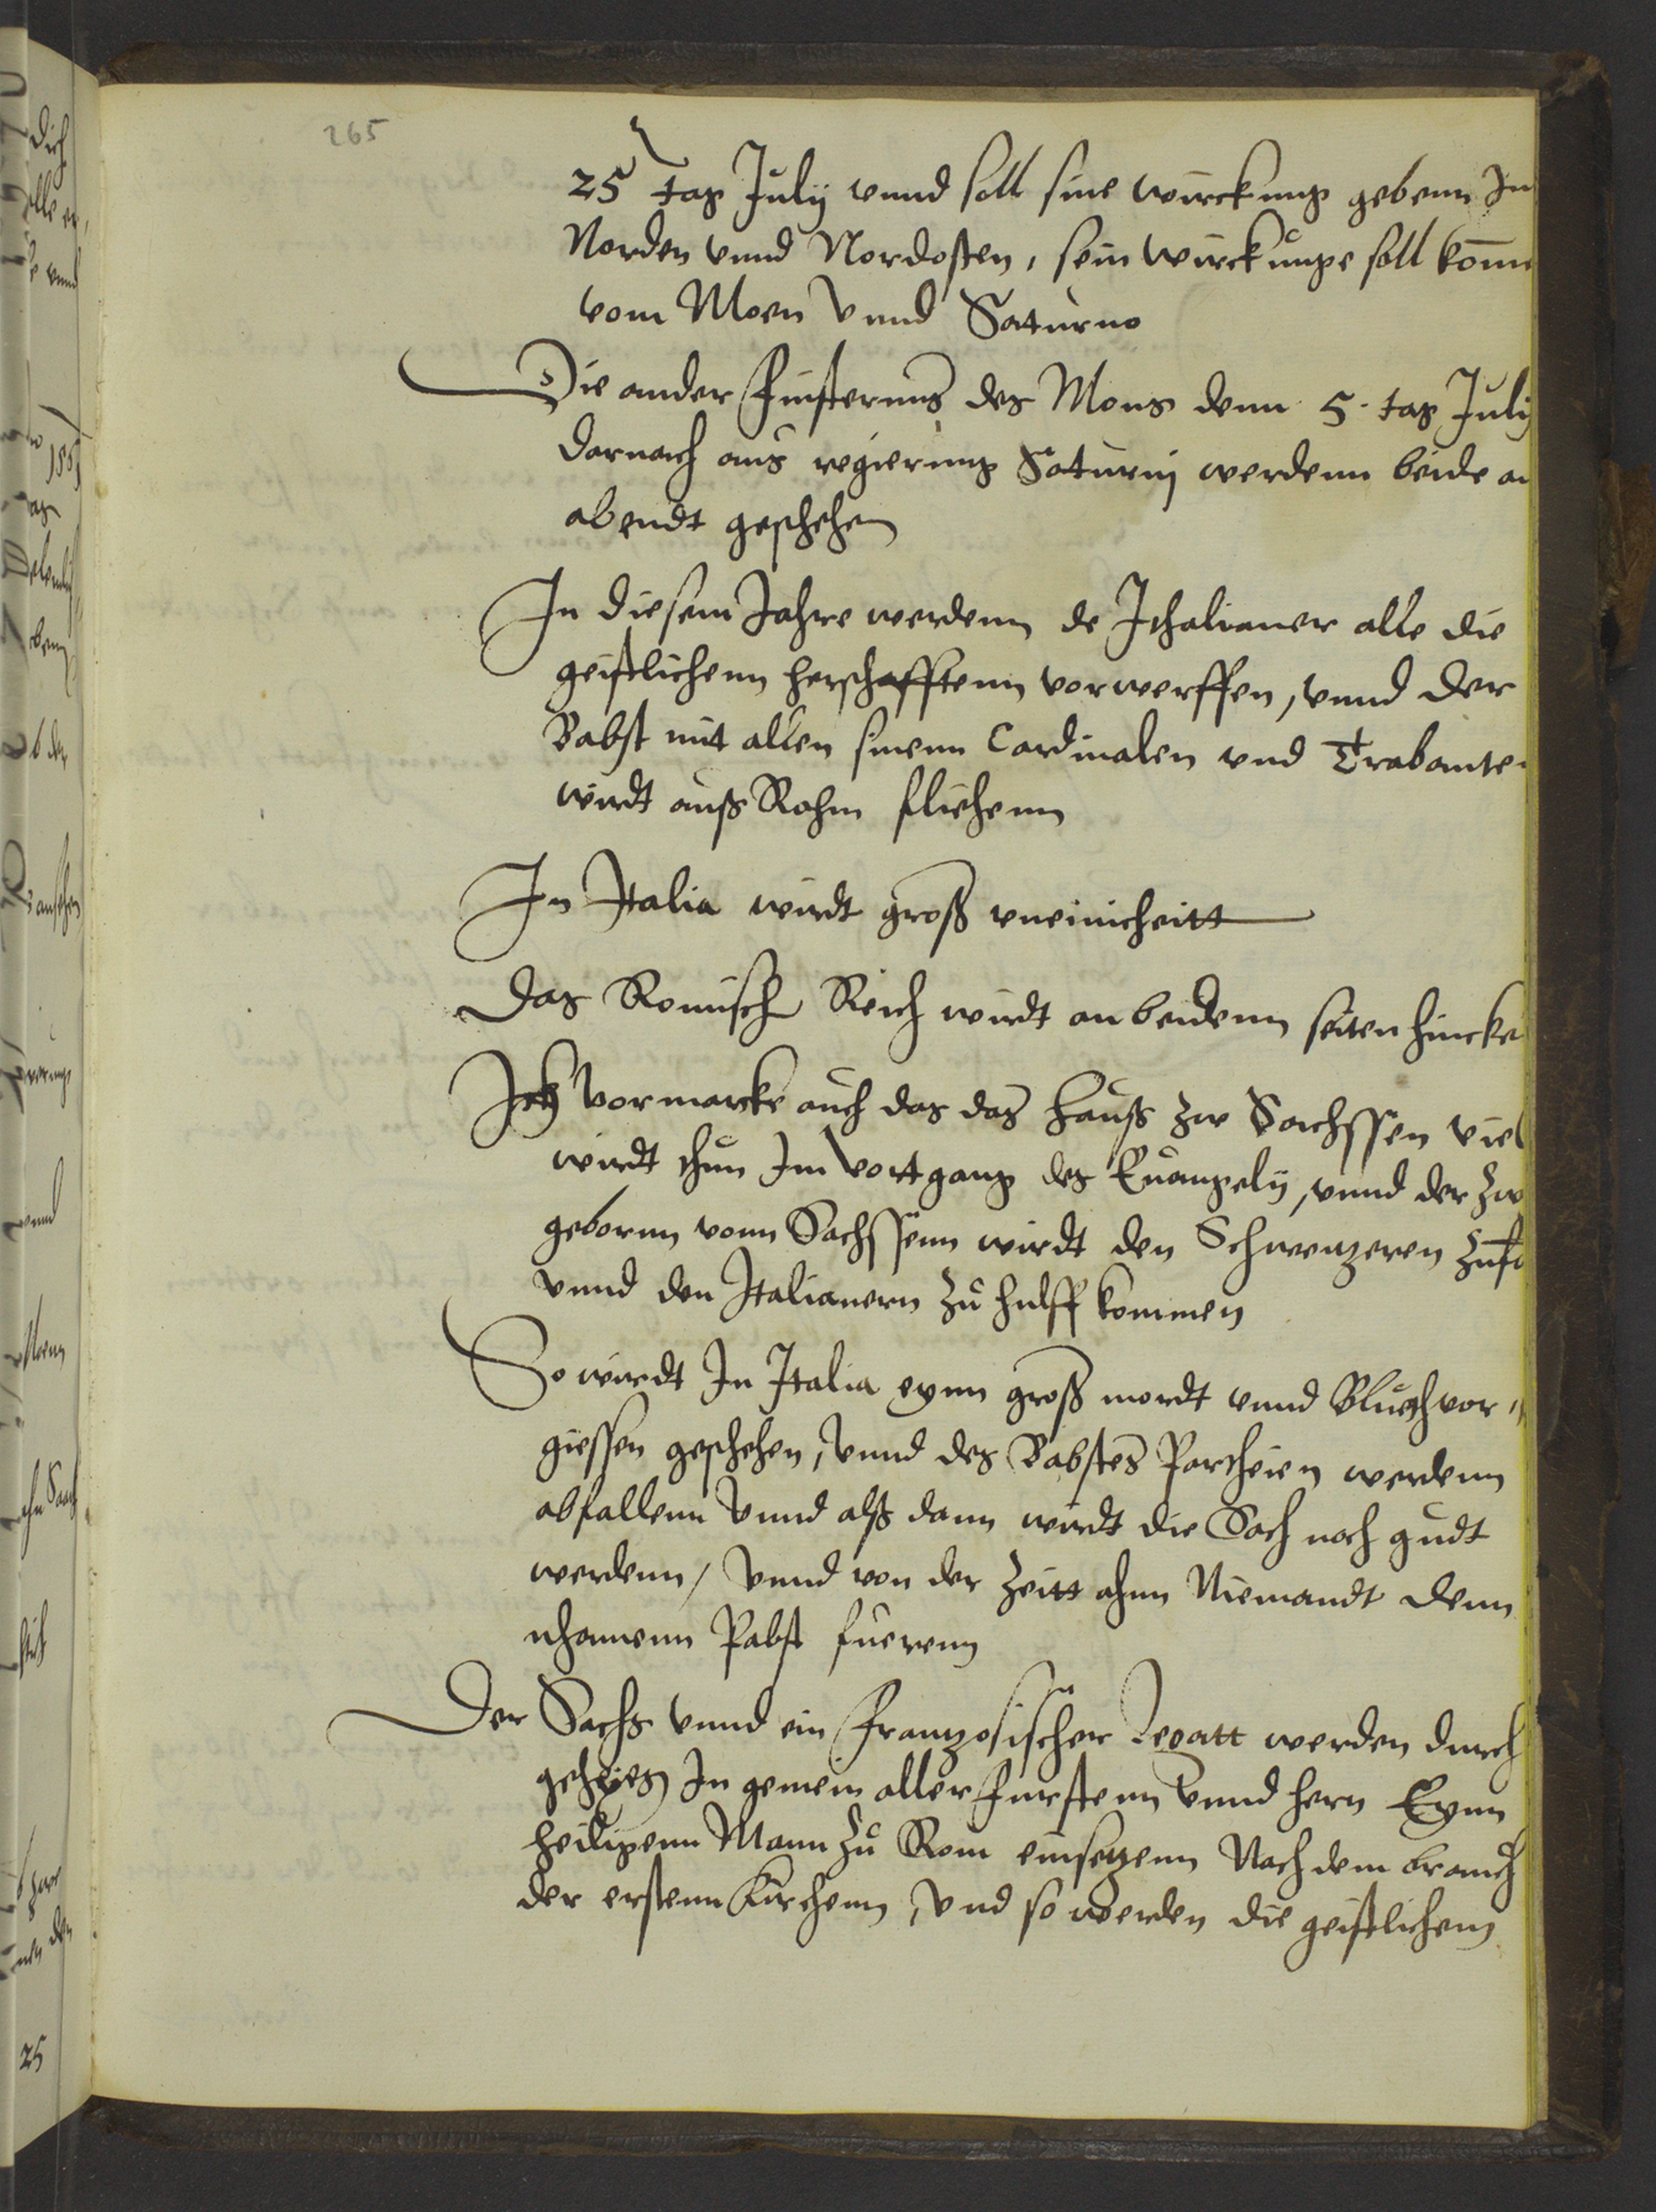 265
25 tag July vnnd soll sine wirckung gebenn In
Norden vnnd Nordosten, sein wirckunge soll kome
vom Moen vnnd Saturno
Die ander finsternus des Mons denn 5. tag July
darnach aus regierung Saturnj werdenn beide
abendt geschehen
In diesem Jahre werdenn de Ithalianer alle die
geistlichenn herschafftenn vorwerffen, vnnd der
Babst mit allen sinenn Cardinalen vnd Trabanten
wirdt auß Rohm fliehenn
In Italia wirdt groß vneinicheitt
Das Romisch Reich wirdt an beidenn seiten hincke
Ich vormarcke auch das das hauß zw Sachssen viel
wirdt thun Im vortgang des Euangely, vnnd der zw
gebornn vonn Sachssenn wirdt den Schweyzeren
vnnd den Italianern zu hulff kommen
So wirdt In Italia eynn groß mordt vnnd Bluth vor
giessen geschehen, vnnd des Babstes Partheien werdenn
abfallenn vnnd alß dann wirdt die Sach noch gudt
werdenn, vnnd von der zeitt ahnn Niemandt denn
nhamenn Pabst fuerenn
Der Sachs vnnd ein Französischer Legatt werden durch
In gemein aller furstenn vnnd hern Eynn
heiligenn Mann zu Rom einsetzenn Nach dem brauch
der erstenn Kirchenn, vnd so werden die geistlichenn